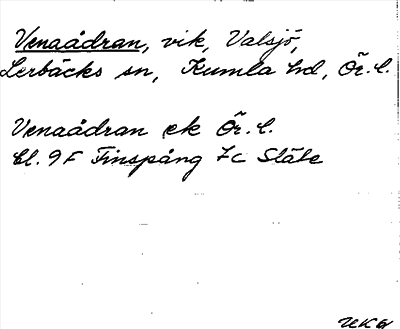 Venaådran, vik, Valsjö,
Lerbäcks sn, Kumla hd, Ör. l.
Venaådran ek Ör. l.
bl. 9F Finspång 7c Släle